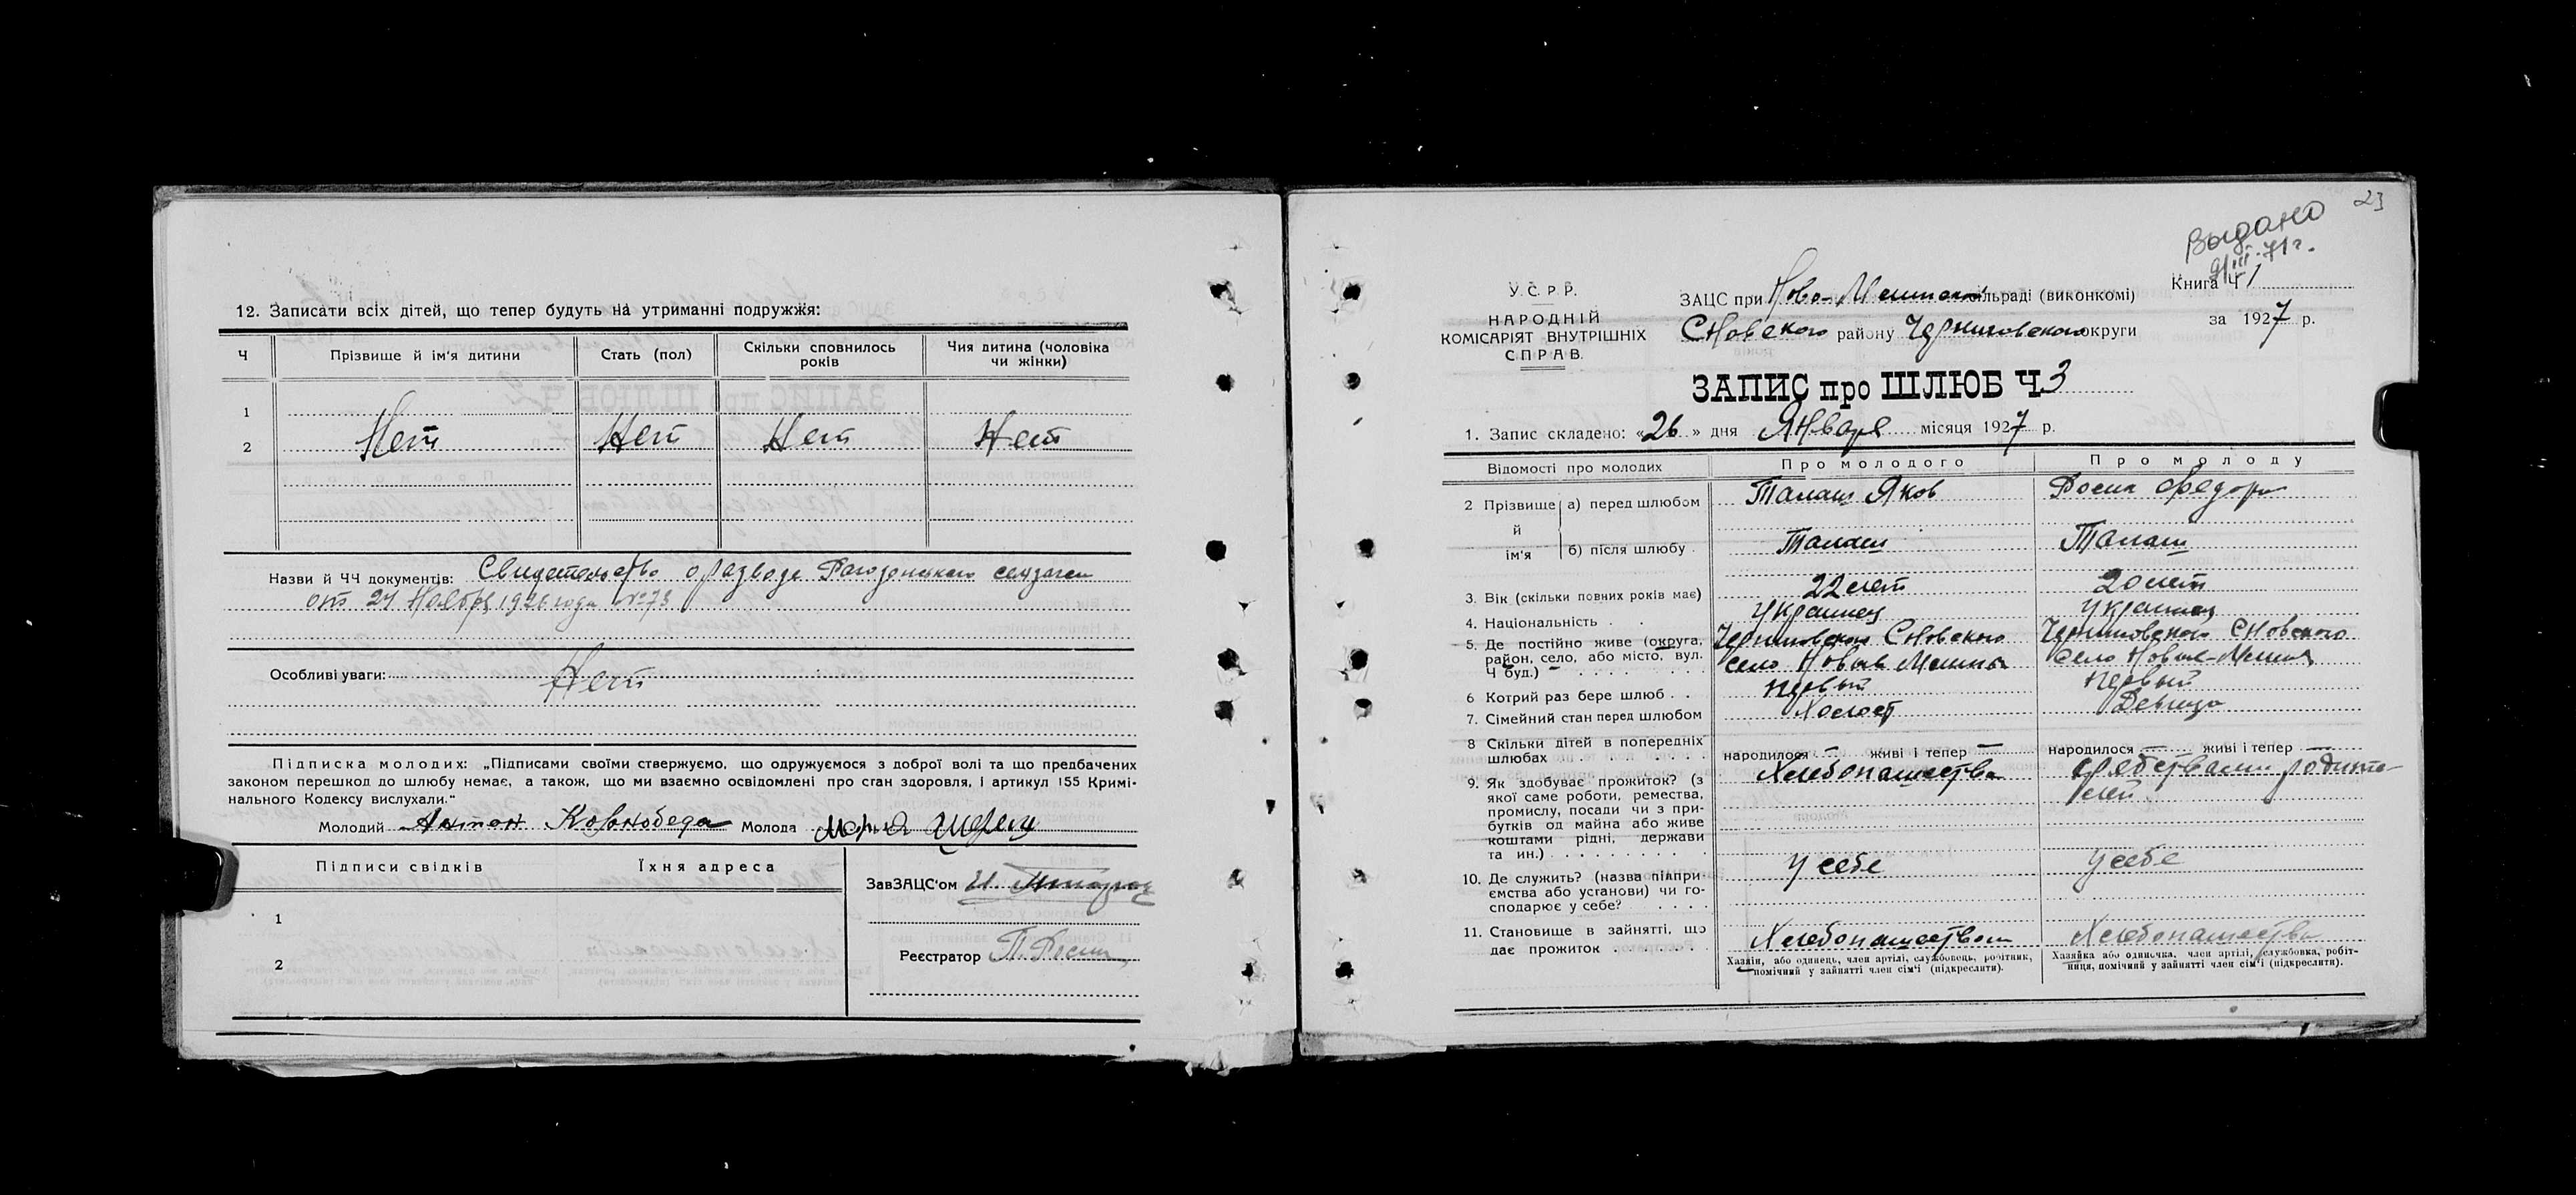 12. Записати всіх дітей, що тепер будуть на утриманні подружжя:
Ч Прізвище й ім'я дитини Стать (пол) Скільки сповнилось років Чия дитина (чоловіка чи жінки)
1
2 Нет Нет Нет Нет
Назви й ЧЧ документів: Свидетельство о разводе
от 24 Ноября 1926 года №73
Особливі уваги: Нет
Підписка молодих: „Підписами своїми ствержуємо, що одружуємося з доброї волі та що предбачених
законом перешкод до шлюбу немає, а також, що ми взаємно освідомлені про стан здоров'я, і артикул 155 Кримі-
нального Кодексу вислухали."
Молодий Антон Молода
Підписи свідків Їхня адреса
ЗавЗАЦС'ом И.
1
Реєстратор П. Росик
2
23
Выдано
9/III-71г.
У.С.Р.Р.
НАРОДНІЙ
КОМІСАРІЯТ ВНУТРІШНІХ
СПРАВ.
ЗАЦС при Ново- сільраді (виконкомі)
Книга Ч 1
Сновского району Черниговского округи
за 1927 р.
ЗАПИС про ШЛЮБ Ч 3
1. Запис складено: «26» дня Января місяця 1927 р.
Відомості про молодих Про молодого Про молоду
2 Прізвище й ім'я а) перед шлюбом Талаш Яков Росик Федора
б) після шлюбу Талаш Талаш
3. Вік (скільки повних років має) 22 лет 20 лет
4. Національність Украинец Украинец
5. Де постійно живе (округа, Черниговского Сновского Черниговского Сновского
район, село, або місто, вул. село Новые Млины село Новые-Млины
Ч буд.)
6 Котрий раз бере шлюб Первый Первый
7. Сімейний стан перед шлюбом Холост Девица
8 Скільки дітей в попередніх
шлюбах народилося — живі і тепер — народилося — живі і тепер —
9. Як здобуває прожиток? (з Хлебопашество средствами родите-
якої саме роботи, ремества, лей
промислу, посади чи з при-
бутків од майна або живе
коштами рідні, держави
та ин.)
10. Де служить? (назва підпри- У себе У себе
ємства або установи) чи го-
сподарює у себе?
11. Становище в зайнятті, що
дає прожиток Хлебопашеством Хлебопашество
Хазяїн, або одинець, член артілі, службовець, робітник,
помічний у зайнятті член сім'ї (підкреслити).
Хазяйка або одиночка, член артілі, службовка, робіт-
ниця, помічний у зайнятті член сім'ї (підкреслити).